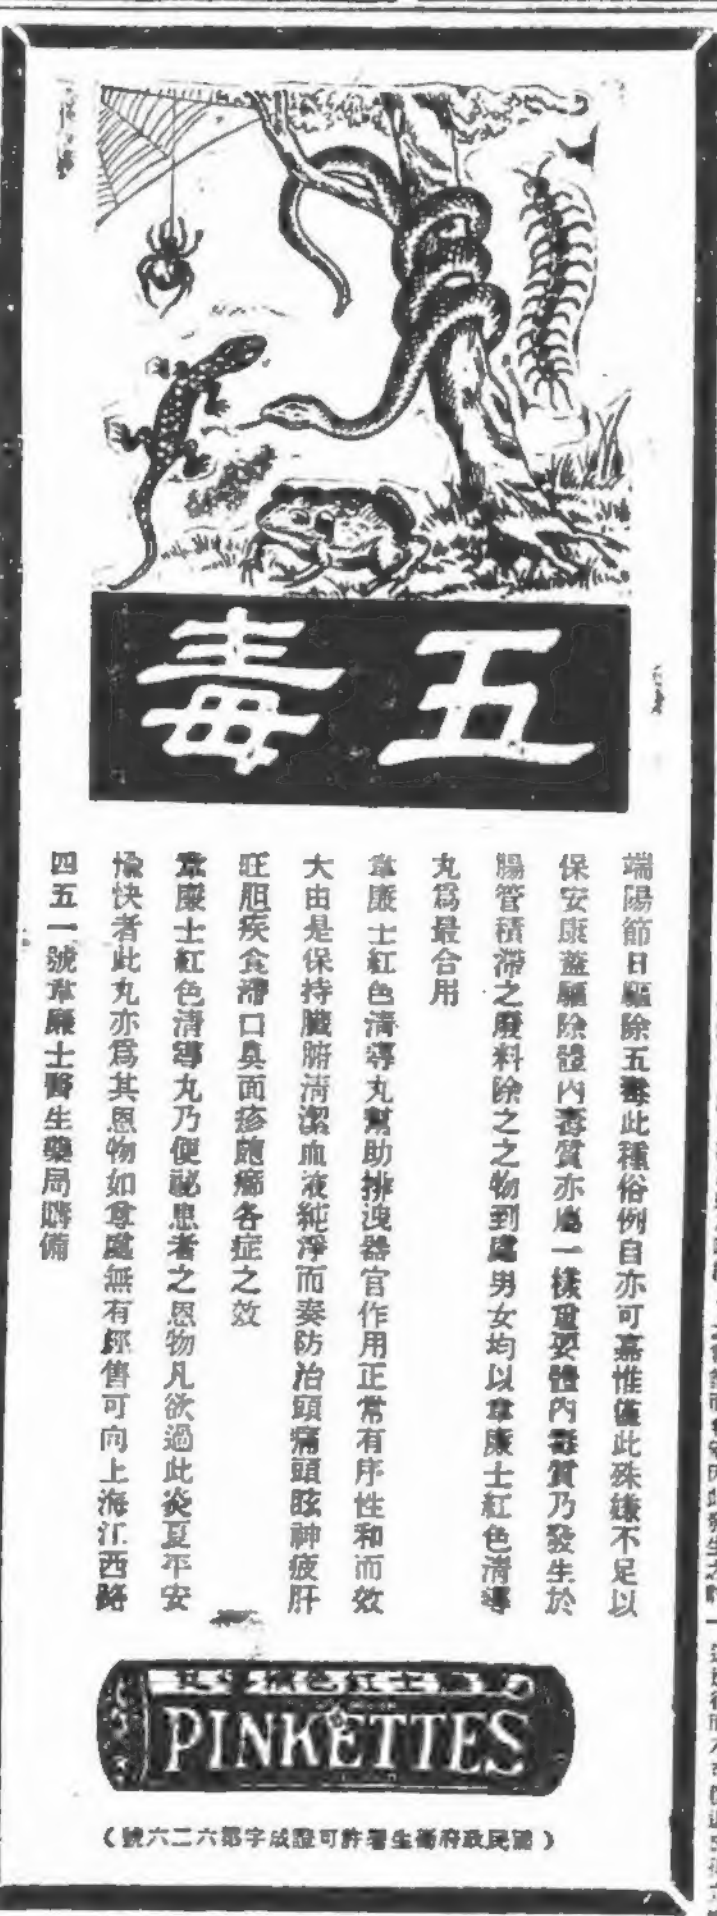 五毒
端陽節日驅除五毒此種俗例自亦可嘉惟僅此殊嫌不足以
保安康蓋驅除體內毒質亦應一樣重要體內毒質乃發生於
腸管積滯之廢料除之之物到處男女均以韋廉士紅色清導
丸為最合用
韋廉士紅色清導丸幫助排洩器官作用正常有序性和而效
大由是保持臟腑清潔血液純淨而奏防治頭痛頭眩神疲肝
旺胆疾食滯口臭面疹皰癤各症之效
韋廉士紅色清導丸乃便祕患者之恩物凡欲過此炎夏平安
愉快者此丸亦為其恩物如尊處無有經售可向上海江西路
四五一號韋廉士醫生藥局購備
韋廉士紅色清導丸
PINKETTES
(國民政府衛生署許可證成字第六二六號)